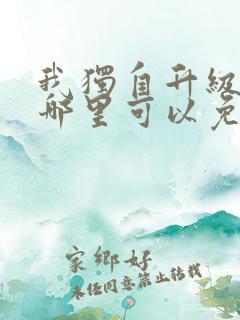 我獨自升級
哪里可以免
家鄉好
未经同意禁止转载